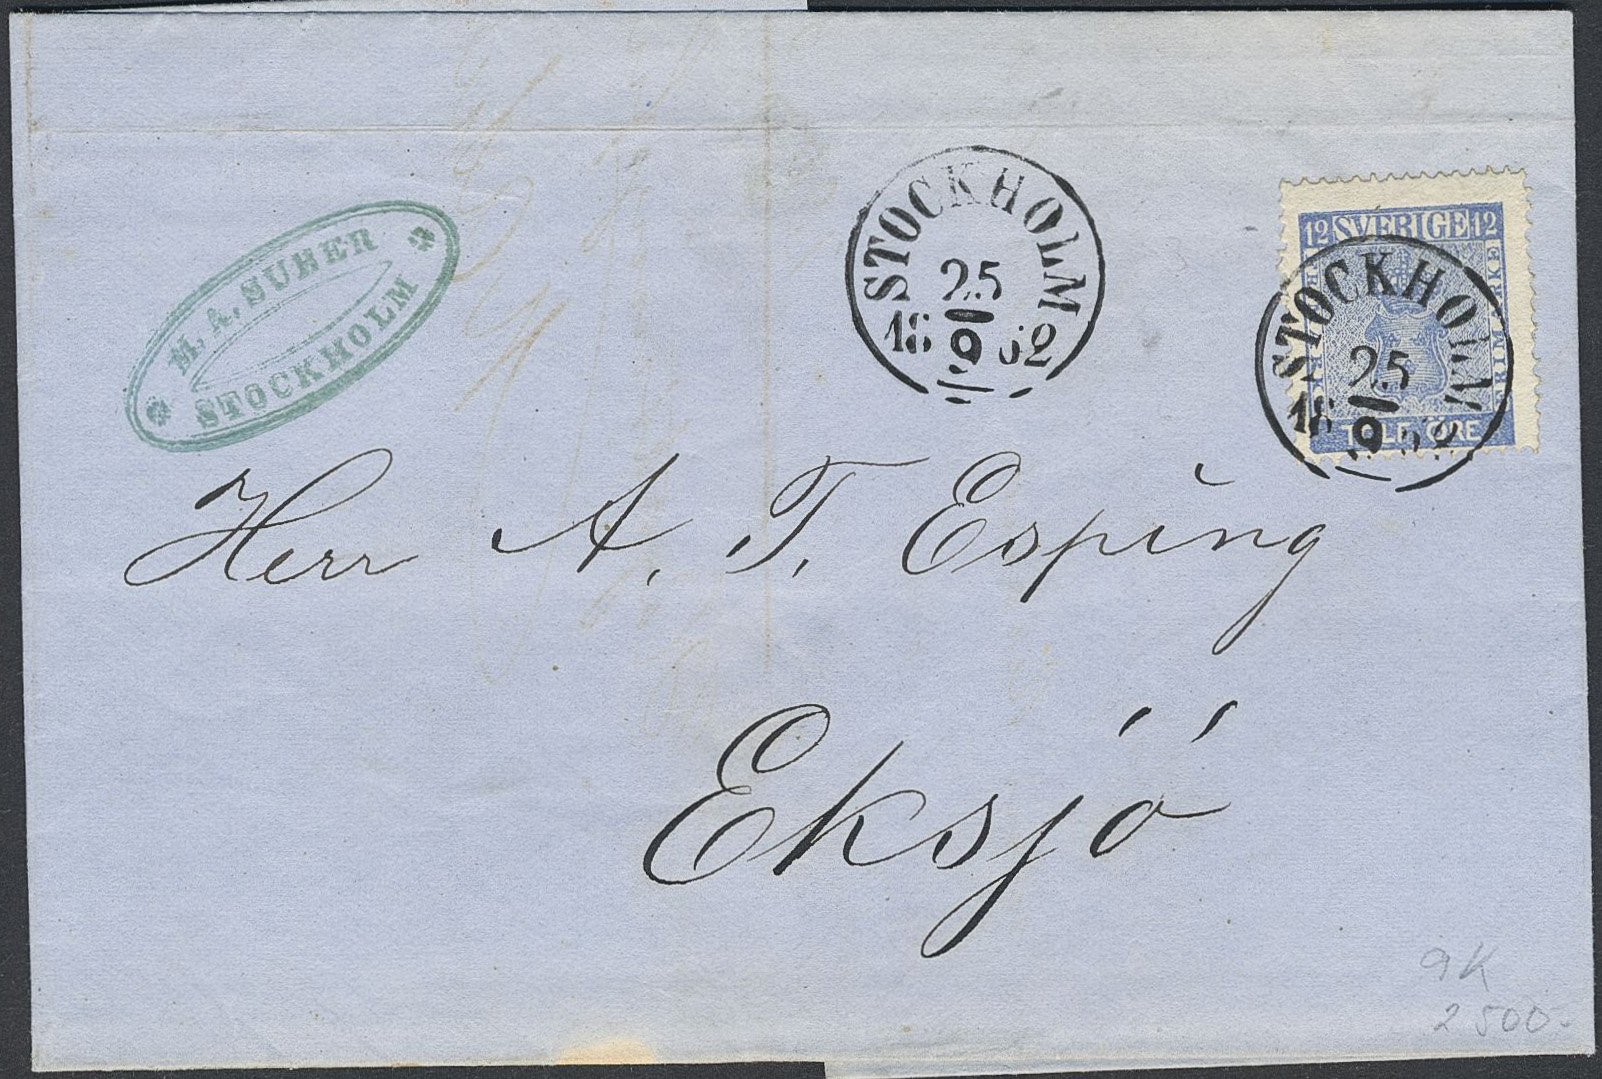 M. A. SUBER
STOCKHOLM
STOCKHOLM
25
18 9 62
12 SVERIGE 12
FRIMÄRKE
TOLF ÖRE
STOCKHOLM
25
18 9 62
Herr A. T. Esping
Eksjö
9K
2500-